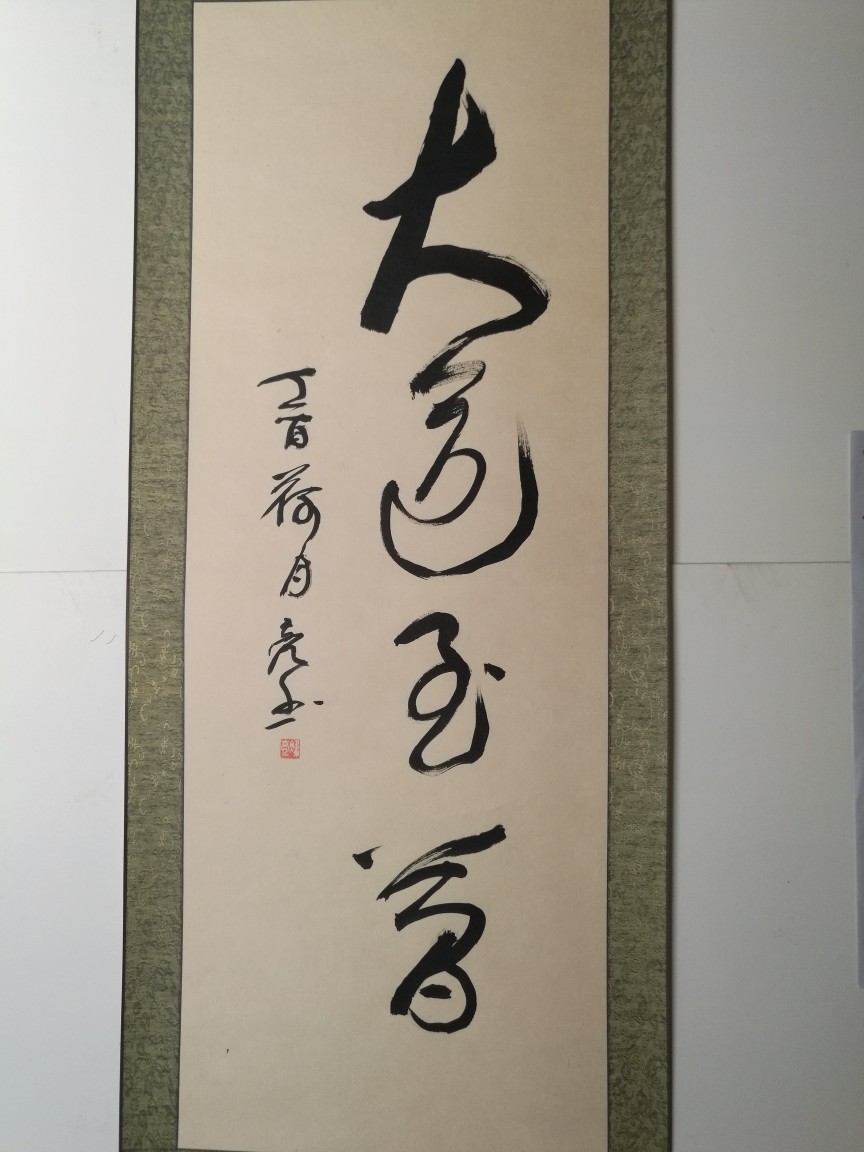 大道至简
丁酉荷月亮